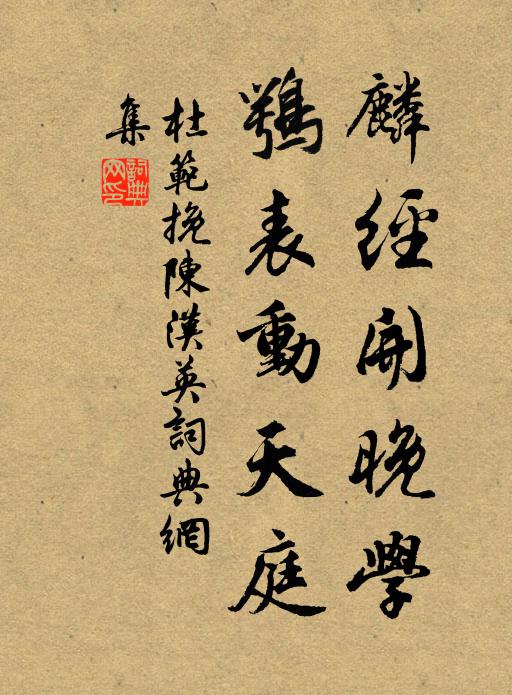 麟經開晚學
鶚表動天庭
杜範挽陳漢英詞典網
集
詞典网印